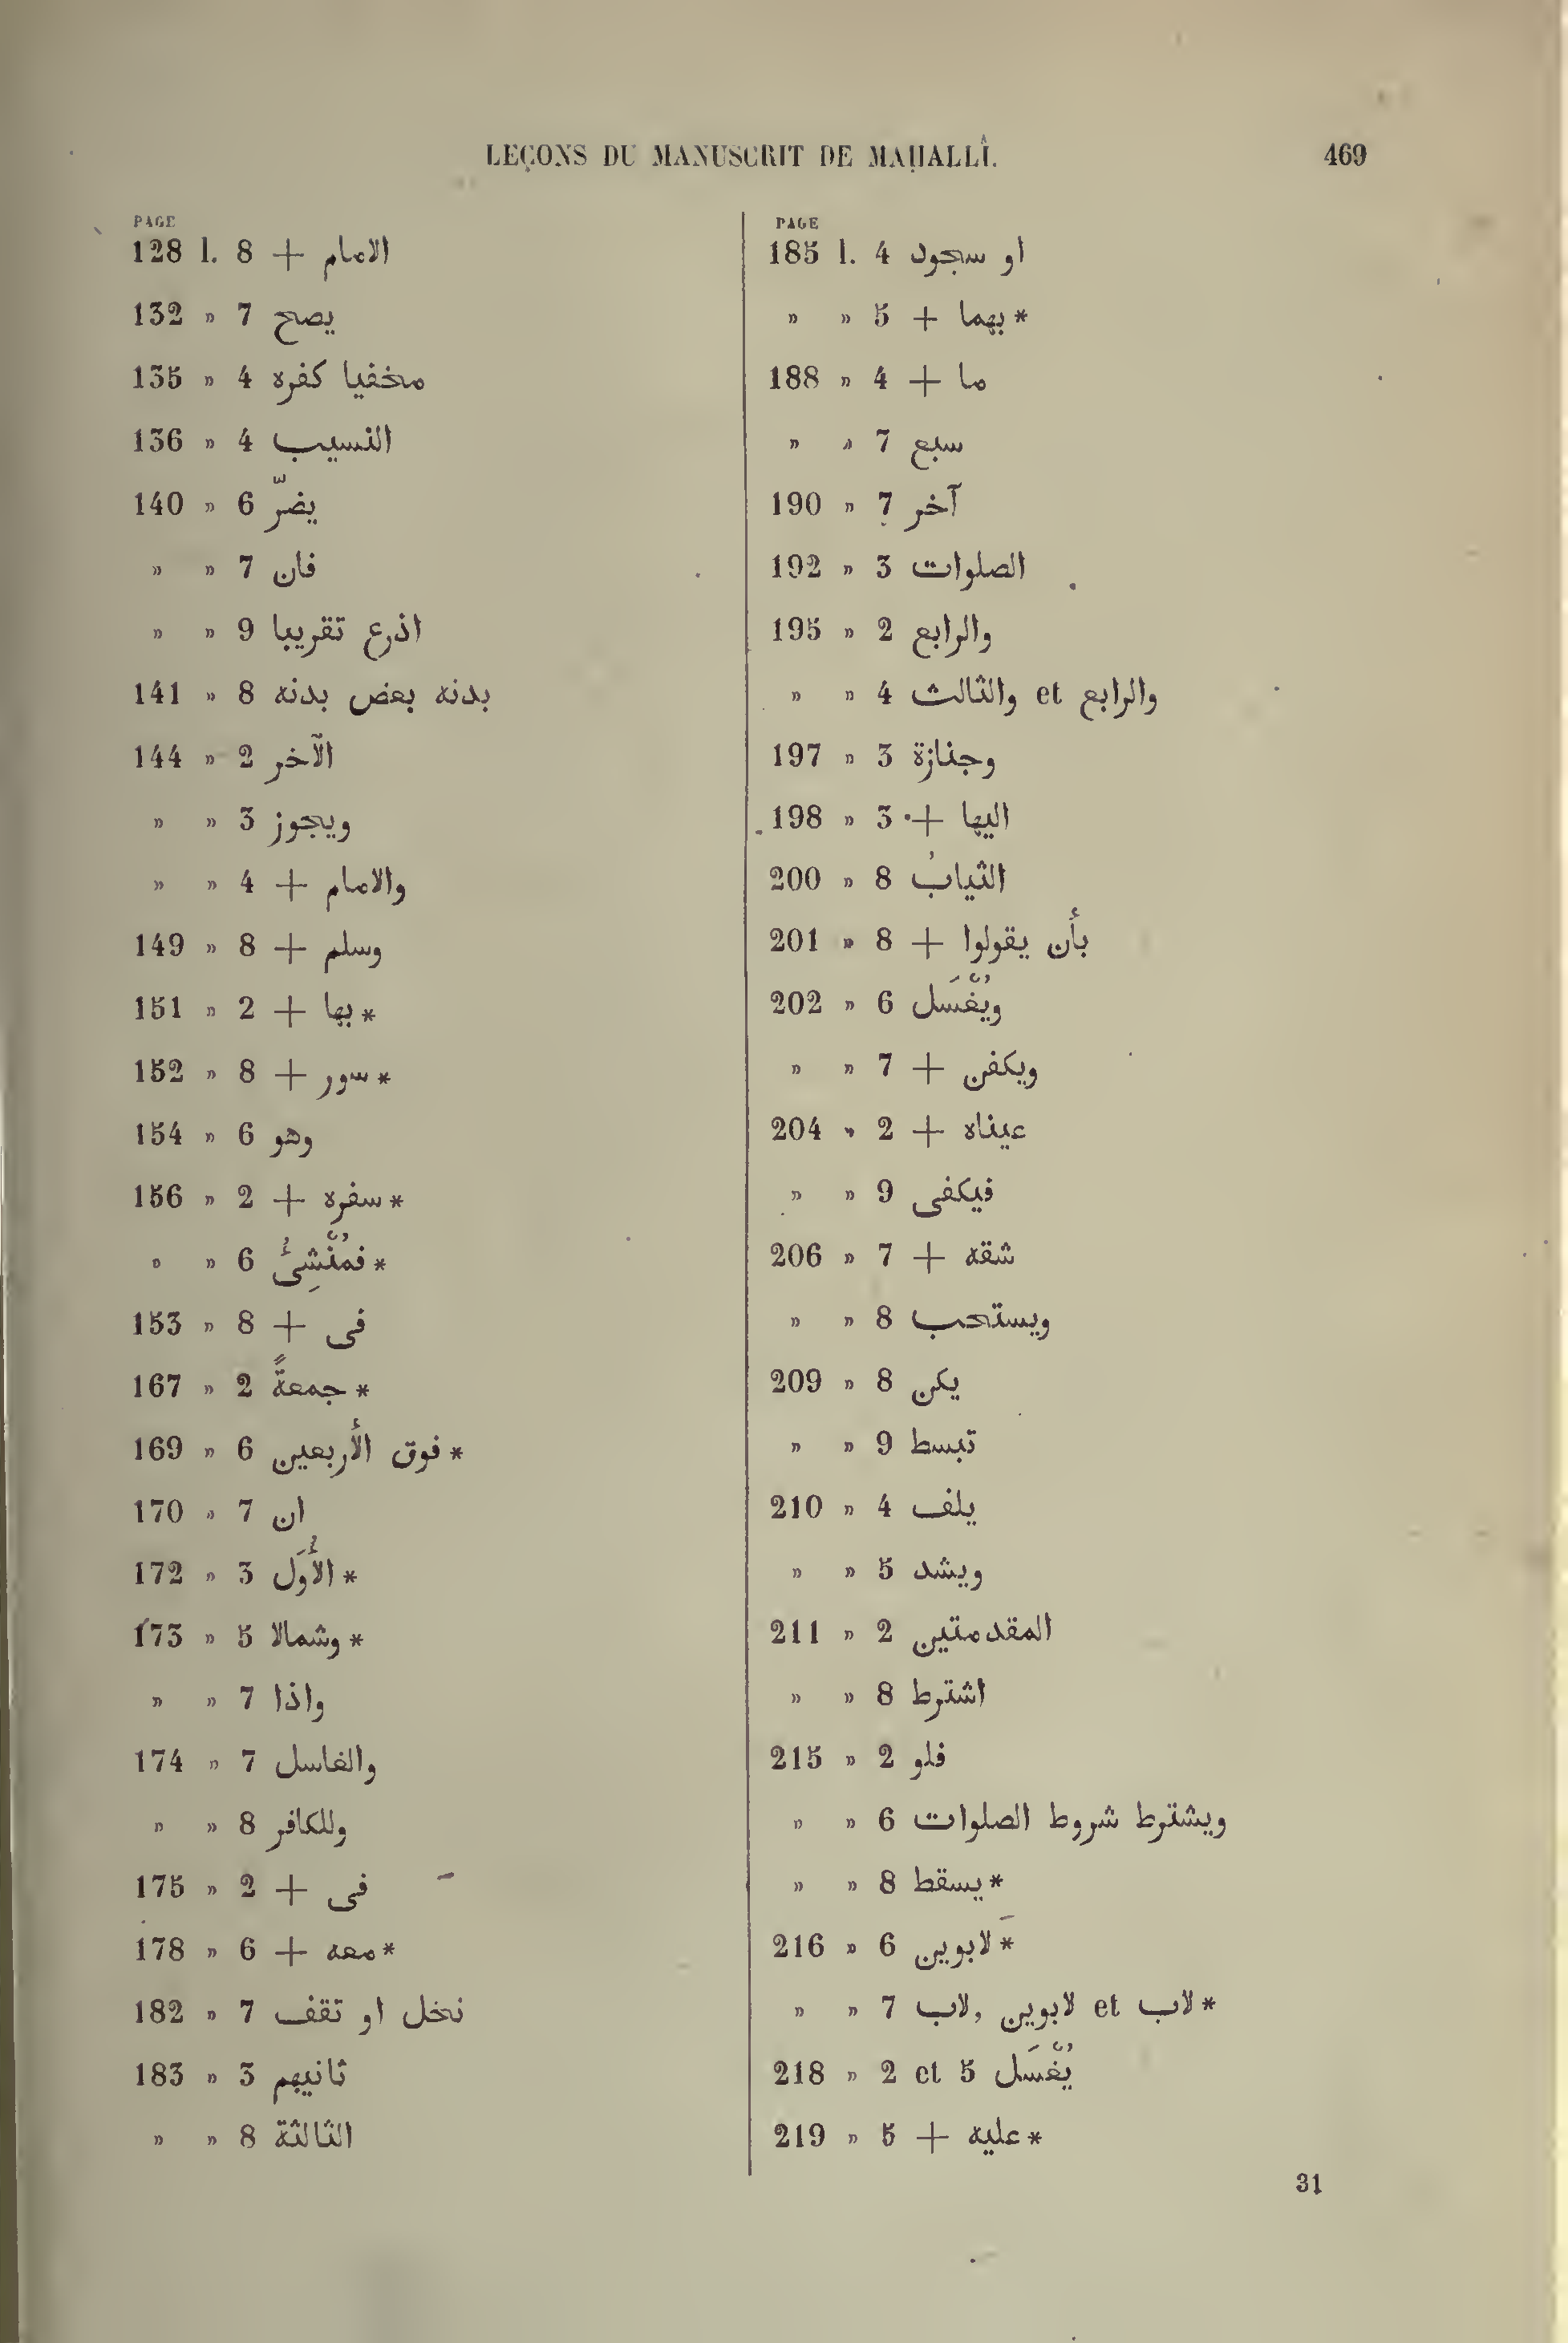 LEÇONS DU MANUSCRIT DE MAḤALLÎ. 469
PAGE
128 l. 8 + الامام
132 » 7 يصح
135 » 4 مخفيا كفره
136 » 4 النسيب
140 » 6 يضرّ
» » 7 فان
» » 9 اذرع تقريبا
141 » 8 بدنه بعض بدنه
144 » 2 الآخر
» » 3 ويجوز
» » 4 + والامام
149 » 8 + وسلم
151 » 2 + بها*
152 » 8 + سور*
154 » 6 وهو
156 » 2 + سفره*
» » 6 فمُنْشِئُ*
153 » 8 + فى
167 » 2 جمعةً*
169 » 6 فوق الأربعين*
170 » 7 ان
172 » 3 الأُوَل*
173 » 5 وشمالا*
» » 7 واذا
174 » 7 والغاسل
» » 8 وللكافر
175 » 2 + فى
178 » 6 + معه*
182 » 7 نخل او تقف
183 » 3 ثانيهم
» » 8 الثالثة
PAGE
185 l. 4 او سجود
» » 5 + بهما*
188 » 4 + ما
» » 7 سبع
190 » 7 آخر
192 » 3 الصلوات
195 » 2 والرابع
» » 4 والثالث et والرابع
197 » 3 وجنازة
198 » 3 + اليها
200 » 8 الثيابُ
201 » 8 + بأن يقولوا
202 » 6 ويُغْسَل
» » 7 + ويكفن
204 » 2 + عيناه
» » 9 فيكفى
206 » 7 + شقه
» » 8 ويستحب
209 » 8 يكن
» » 9 تبسط
210 » 4 يلف
» » 5 ويشد
211 » 2 المقدمتين
» » 8 اشترط
215 » 2 فلو
» » 6 ويشترط شروط الصلوات
» » 8 يسقط*
216 » 6 لابوين*
» » 7 لاب, لابوين et لاب*
218 » 2 et 5 يُغْسَل
219 » 5 + عليه*
31